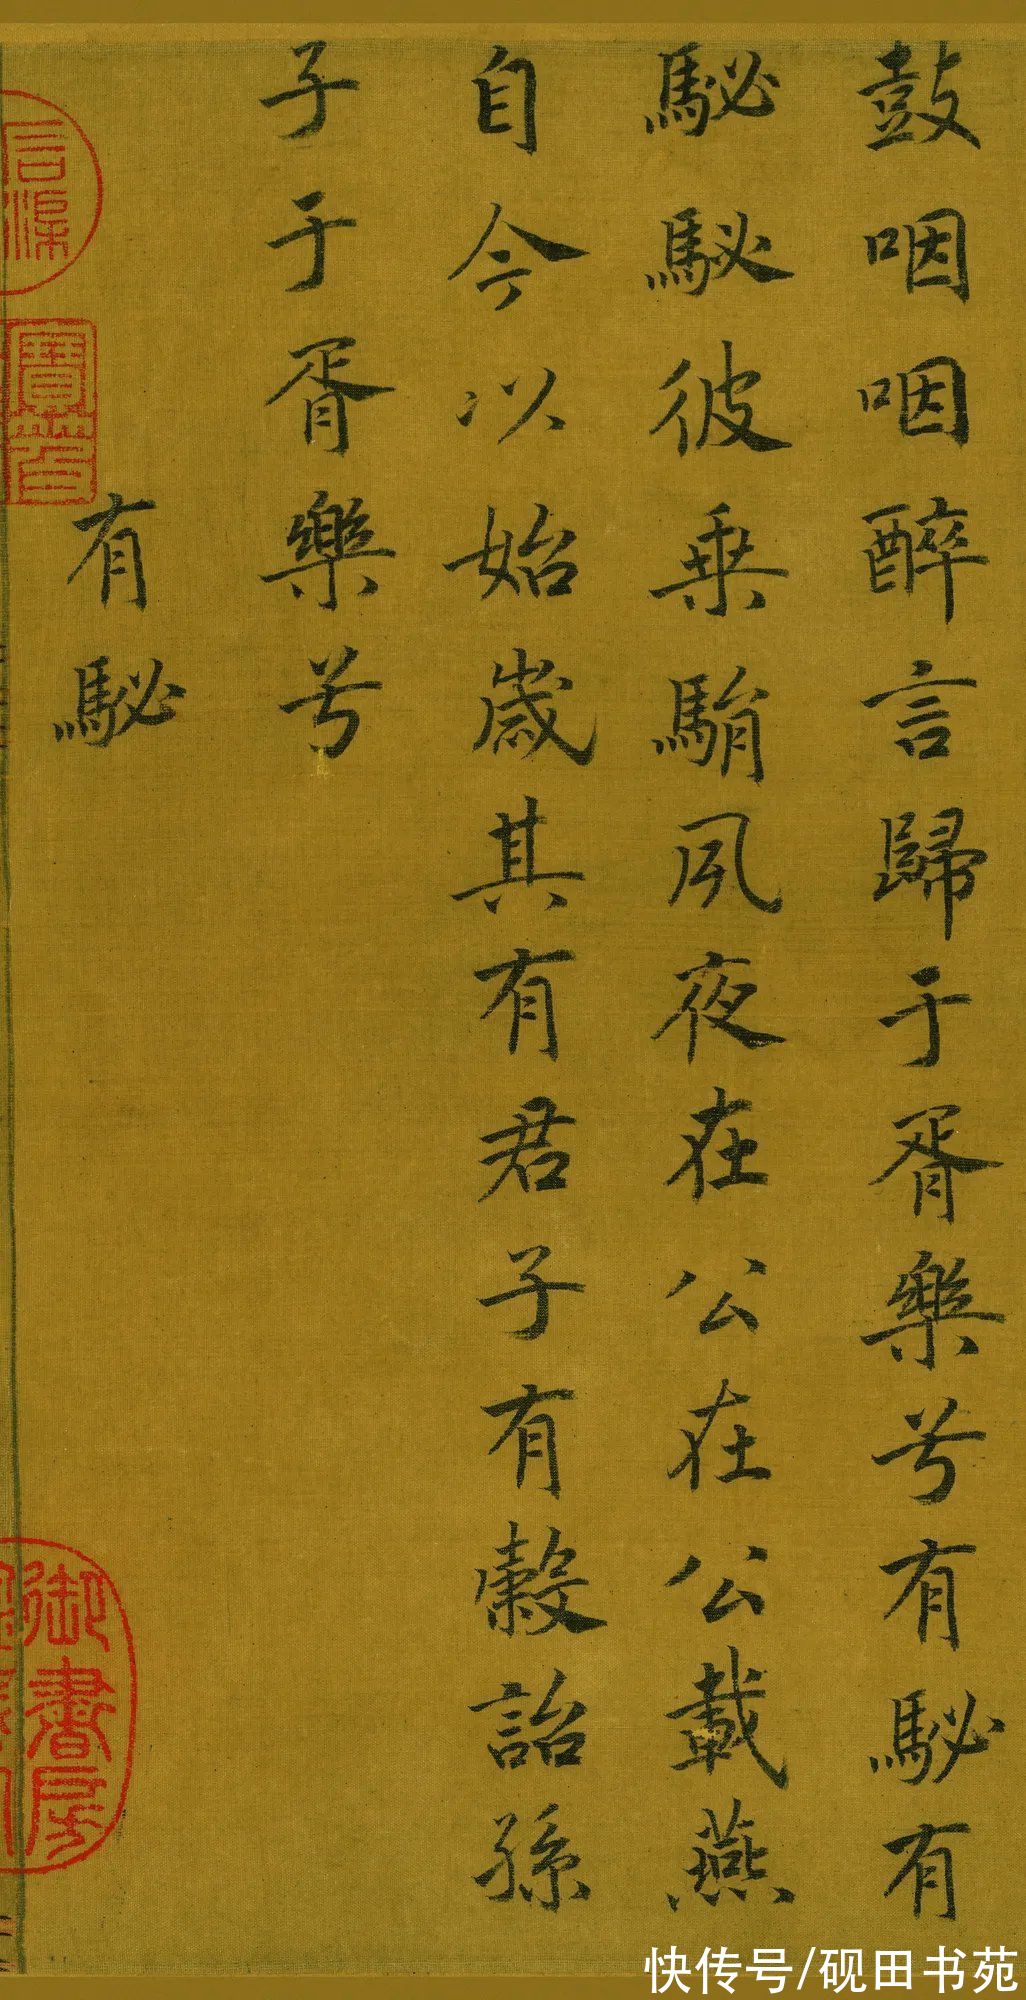 鼓咽咽醉言歸于胥樂兮有駜有
駜駜彼乗駽夙夜在公在公載燕
自今以始歲其有君子有穀詒孫
子于胥樂兮
有駜
石渠
寶笈
御書房
快传号/砚田书苑